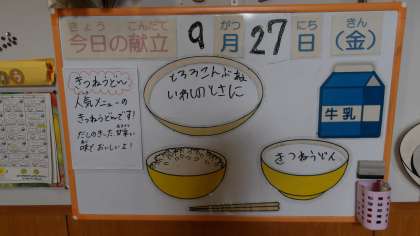 きょう こんだて がつ にち きん
今日の献立 9月27日(金)
きつねうどん
人気メニューの
きつねうどんです!
だしのきいた、甘辛い
味で、おいしいよ!
とろろこんぶね
いわしのとさに
牛乳
きつねうどん